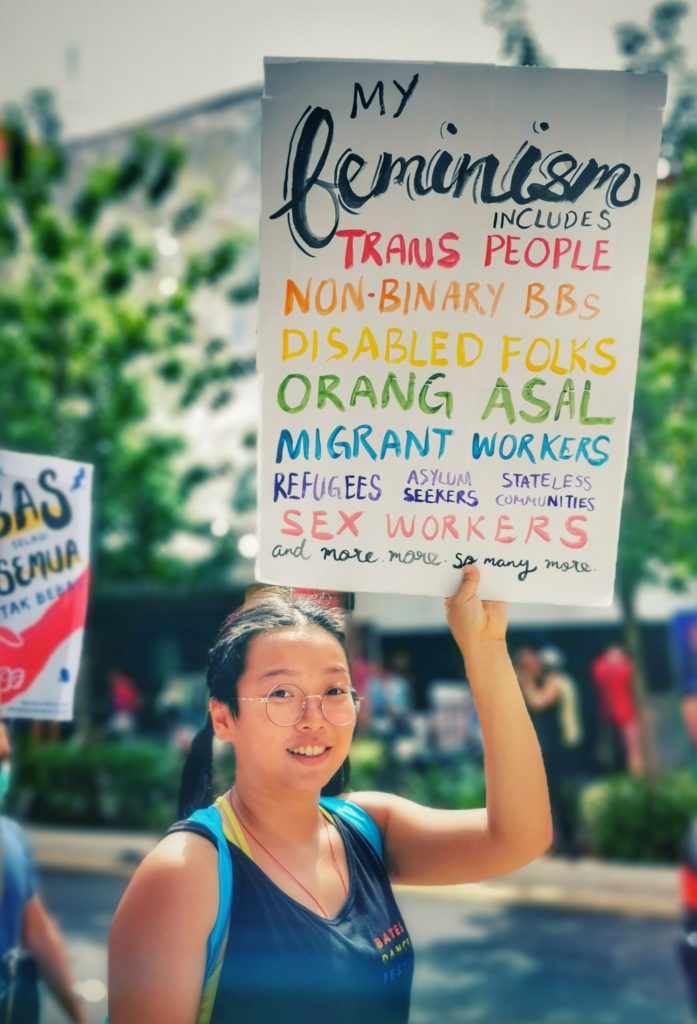 MY
feminism
INCLUDES
TRANS PEOPLE
NON-BINARY BBS
DISABLED FOLKS
ORANG ASAL
MIGRANT WORKERS
REFUGEES ASYLUM SEEKERS STATELESS COMMUNITIES
SEX WORKERS
and more. more. so many more.
BAS
SELAGI
SEMUA
TAK BEBAS
BATES
DANCE
FEST